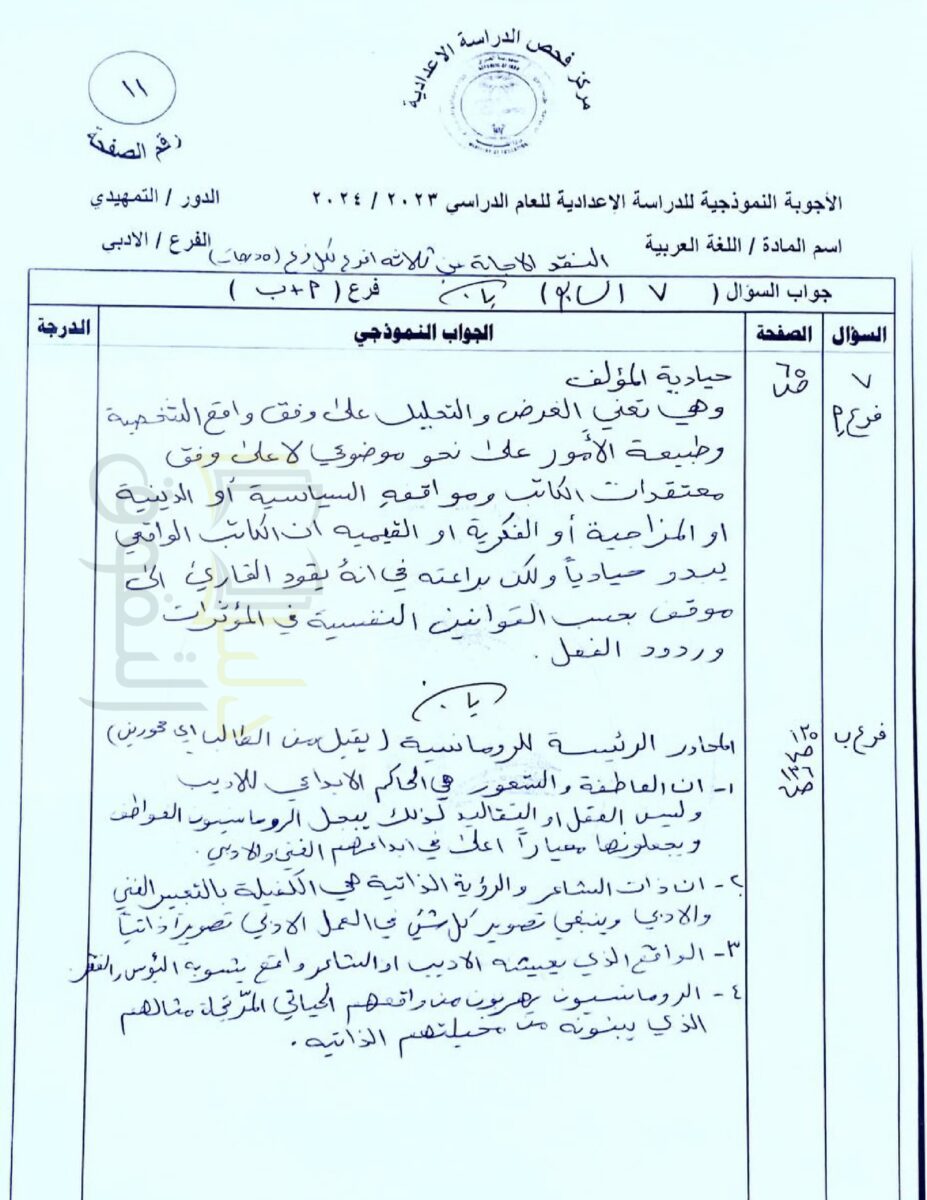 مركز فحص الدراسة الاعدادية
١١
رقم الصفحة
الأجوبة النموذجية للدراسة الإعدادية للعام الدراسي ٢٠٢٣ / ٢٠٢٤ الدور / التمهيدي
اسم المادة / اللغة العربية الفرع / الادبي
النقد الاجابة عن ثلاثة افرع لكل فرع (١٠ درجات)
جواب السؤال ( ٧ السابع ) فرع ( أ + ب )
السؤال الصفحة الجواب النموذجي الدرجة
٧ ص٦٥ حيادية المؤلف
فرع أ وهي تعني العرض والتحليل على وفق واقع الشخصية
وطبيعة الأمور على نحو موضوعي لا على وفق
معتقدات الكاتب ومواقفه السياسية أو الدينية
او المزاجية أو الفكرية او القيميه ان الكاتب الواقعي
يبدو حيادياً ولكن براعته في انهُ يقود القارئ الى
موقف بحسب القوانين النفسية في المؤثرات
وردود الفعل .
فرع ب ص١٣٥ المحاور الرئيسة للرومانسية ( يقبل من الطالب اي محورين )
ص١٣٦ ١- ان العاطفة والشعور هي الحاكم الابداعي للاديب
وليس العقل او التقاليد لذلك يبجل الرومانسيون العواطف
ويجعلونها معياراً اعلى في ابداعهم الفني والادبي .
٢- ان ذات الشاعر والرؤية الذاتية هي الكفيلة بالتعبير الفني
والادبي وينبغي تصوير كل شئ في العمل الادبي تصويراً ذاتياً
٣- الواقع الذي يعيشه الاديب او الشاعر واقع يشوبه البؤس والفقر.
٤- الرومانسيون يهربون من واقعهم الحياتي المرّ تجاه مثالهم
الذي يبنونه من مخيلتهم الذاتيه .